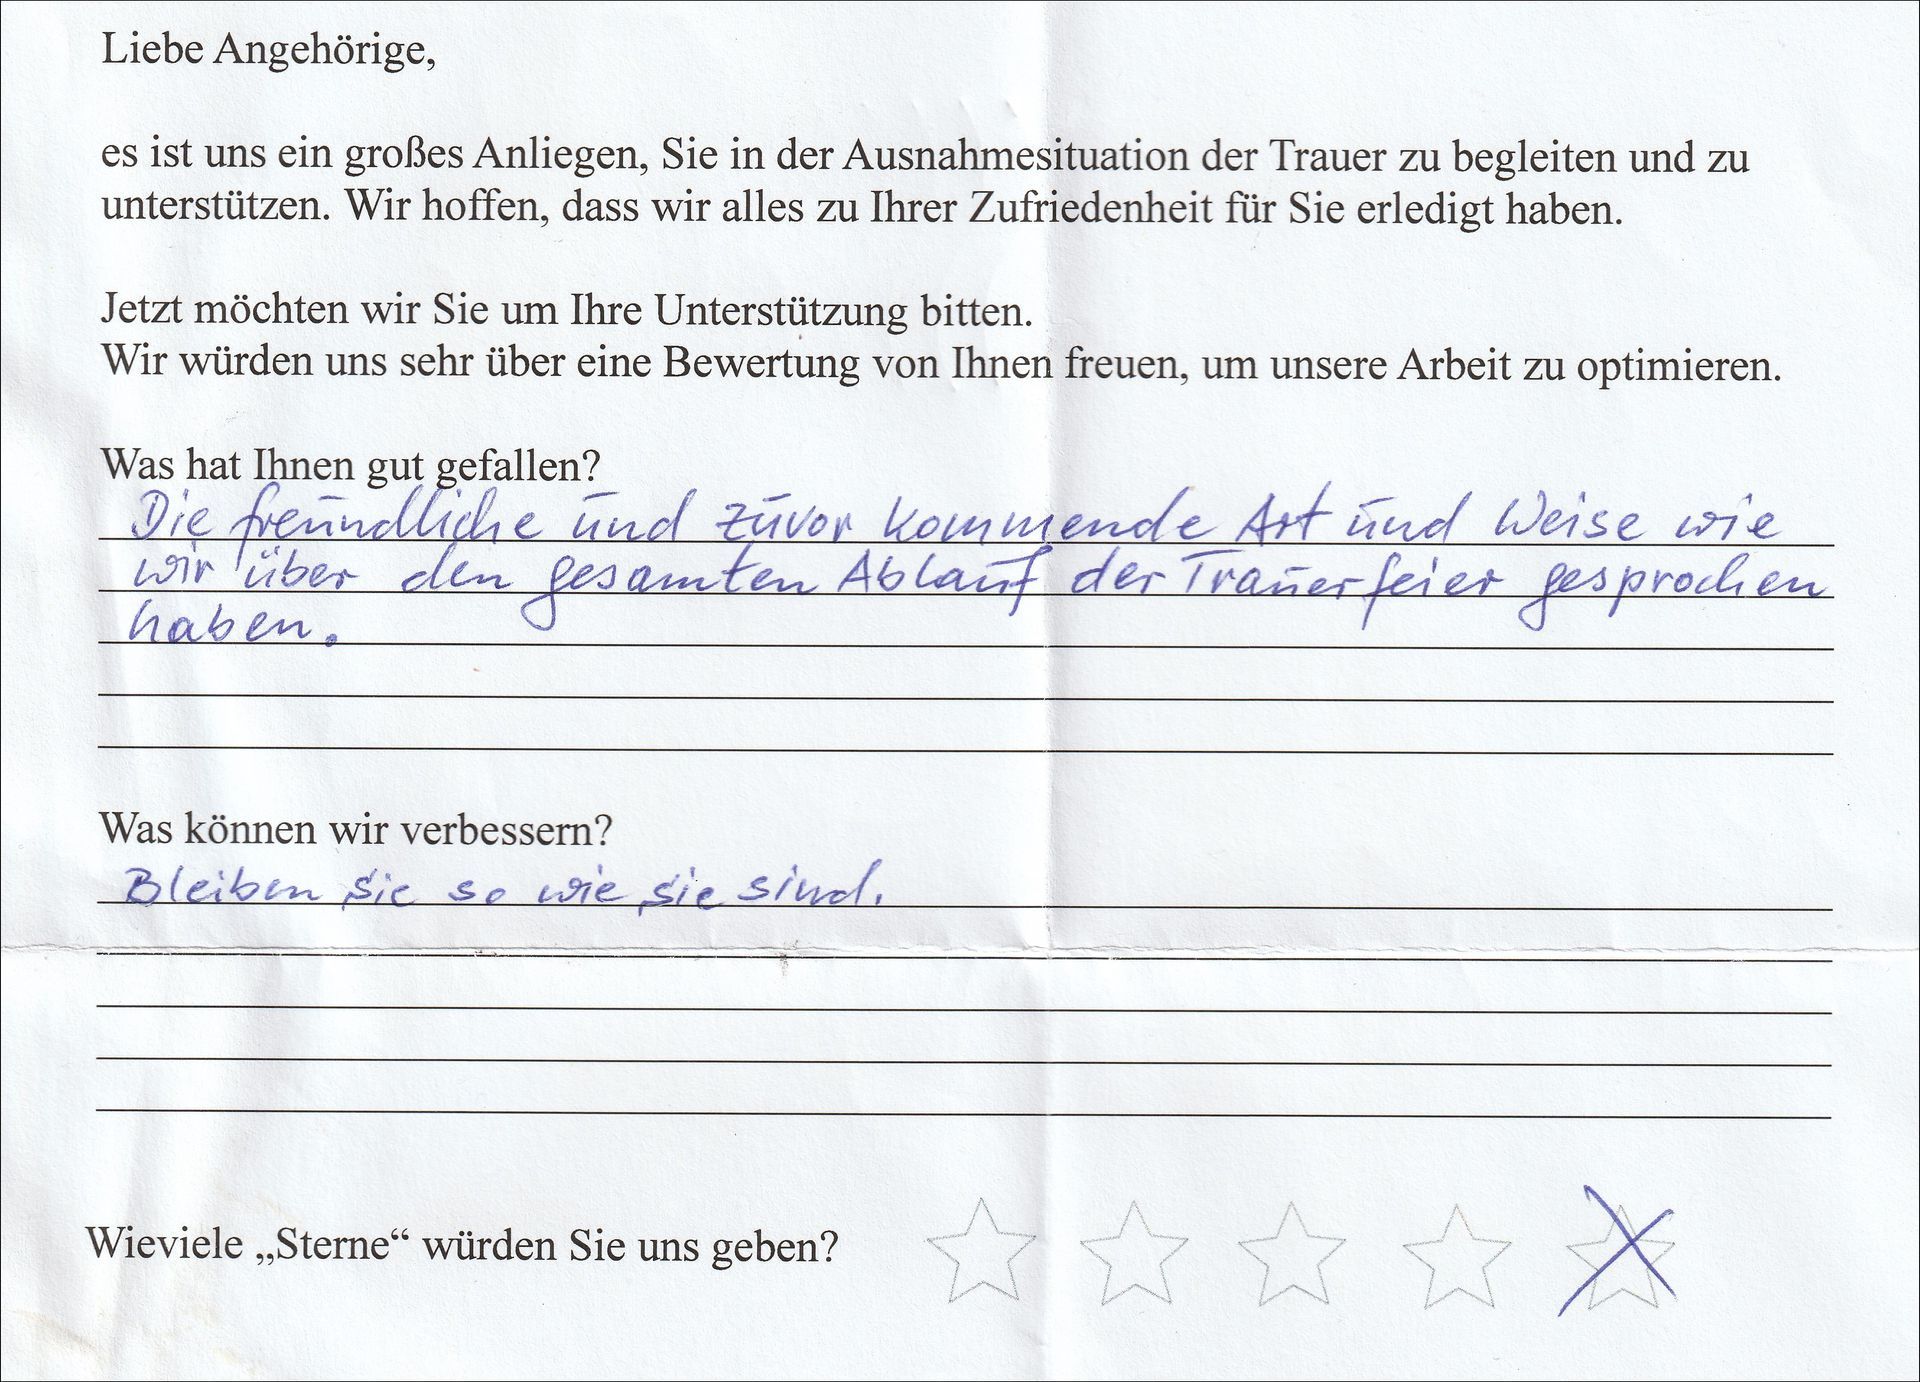 Liebe Angehörige,
es ist uns ein großes Anliegen, Sie in der Ausnahmesituation der Trauer zu begleiten und zu
unterstützen. Wir hoffen, dass wir alles zu Ihrer Zufriedenheit für Sie erledigt haben.
Jetzt möchten wir Sie um Ihre Unterstützung bitten.
Wir würden uns sehr über eine Bewertung von Ihnen freuen, um unsere Arbeit zu optimieren.
Was hat Ihnen gut gefallen?
Die freundliche und zuvor kommende Art und Weise wie
wir über den gesamten Ablauf der Trauerfeier gesprochen
haben.
Was können wir verbessern?
Bleiben Sie so wie Sie sind.
Wieviele „Sterne“ würden Sie uns geben?